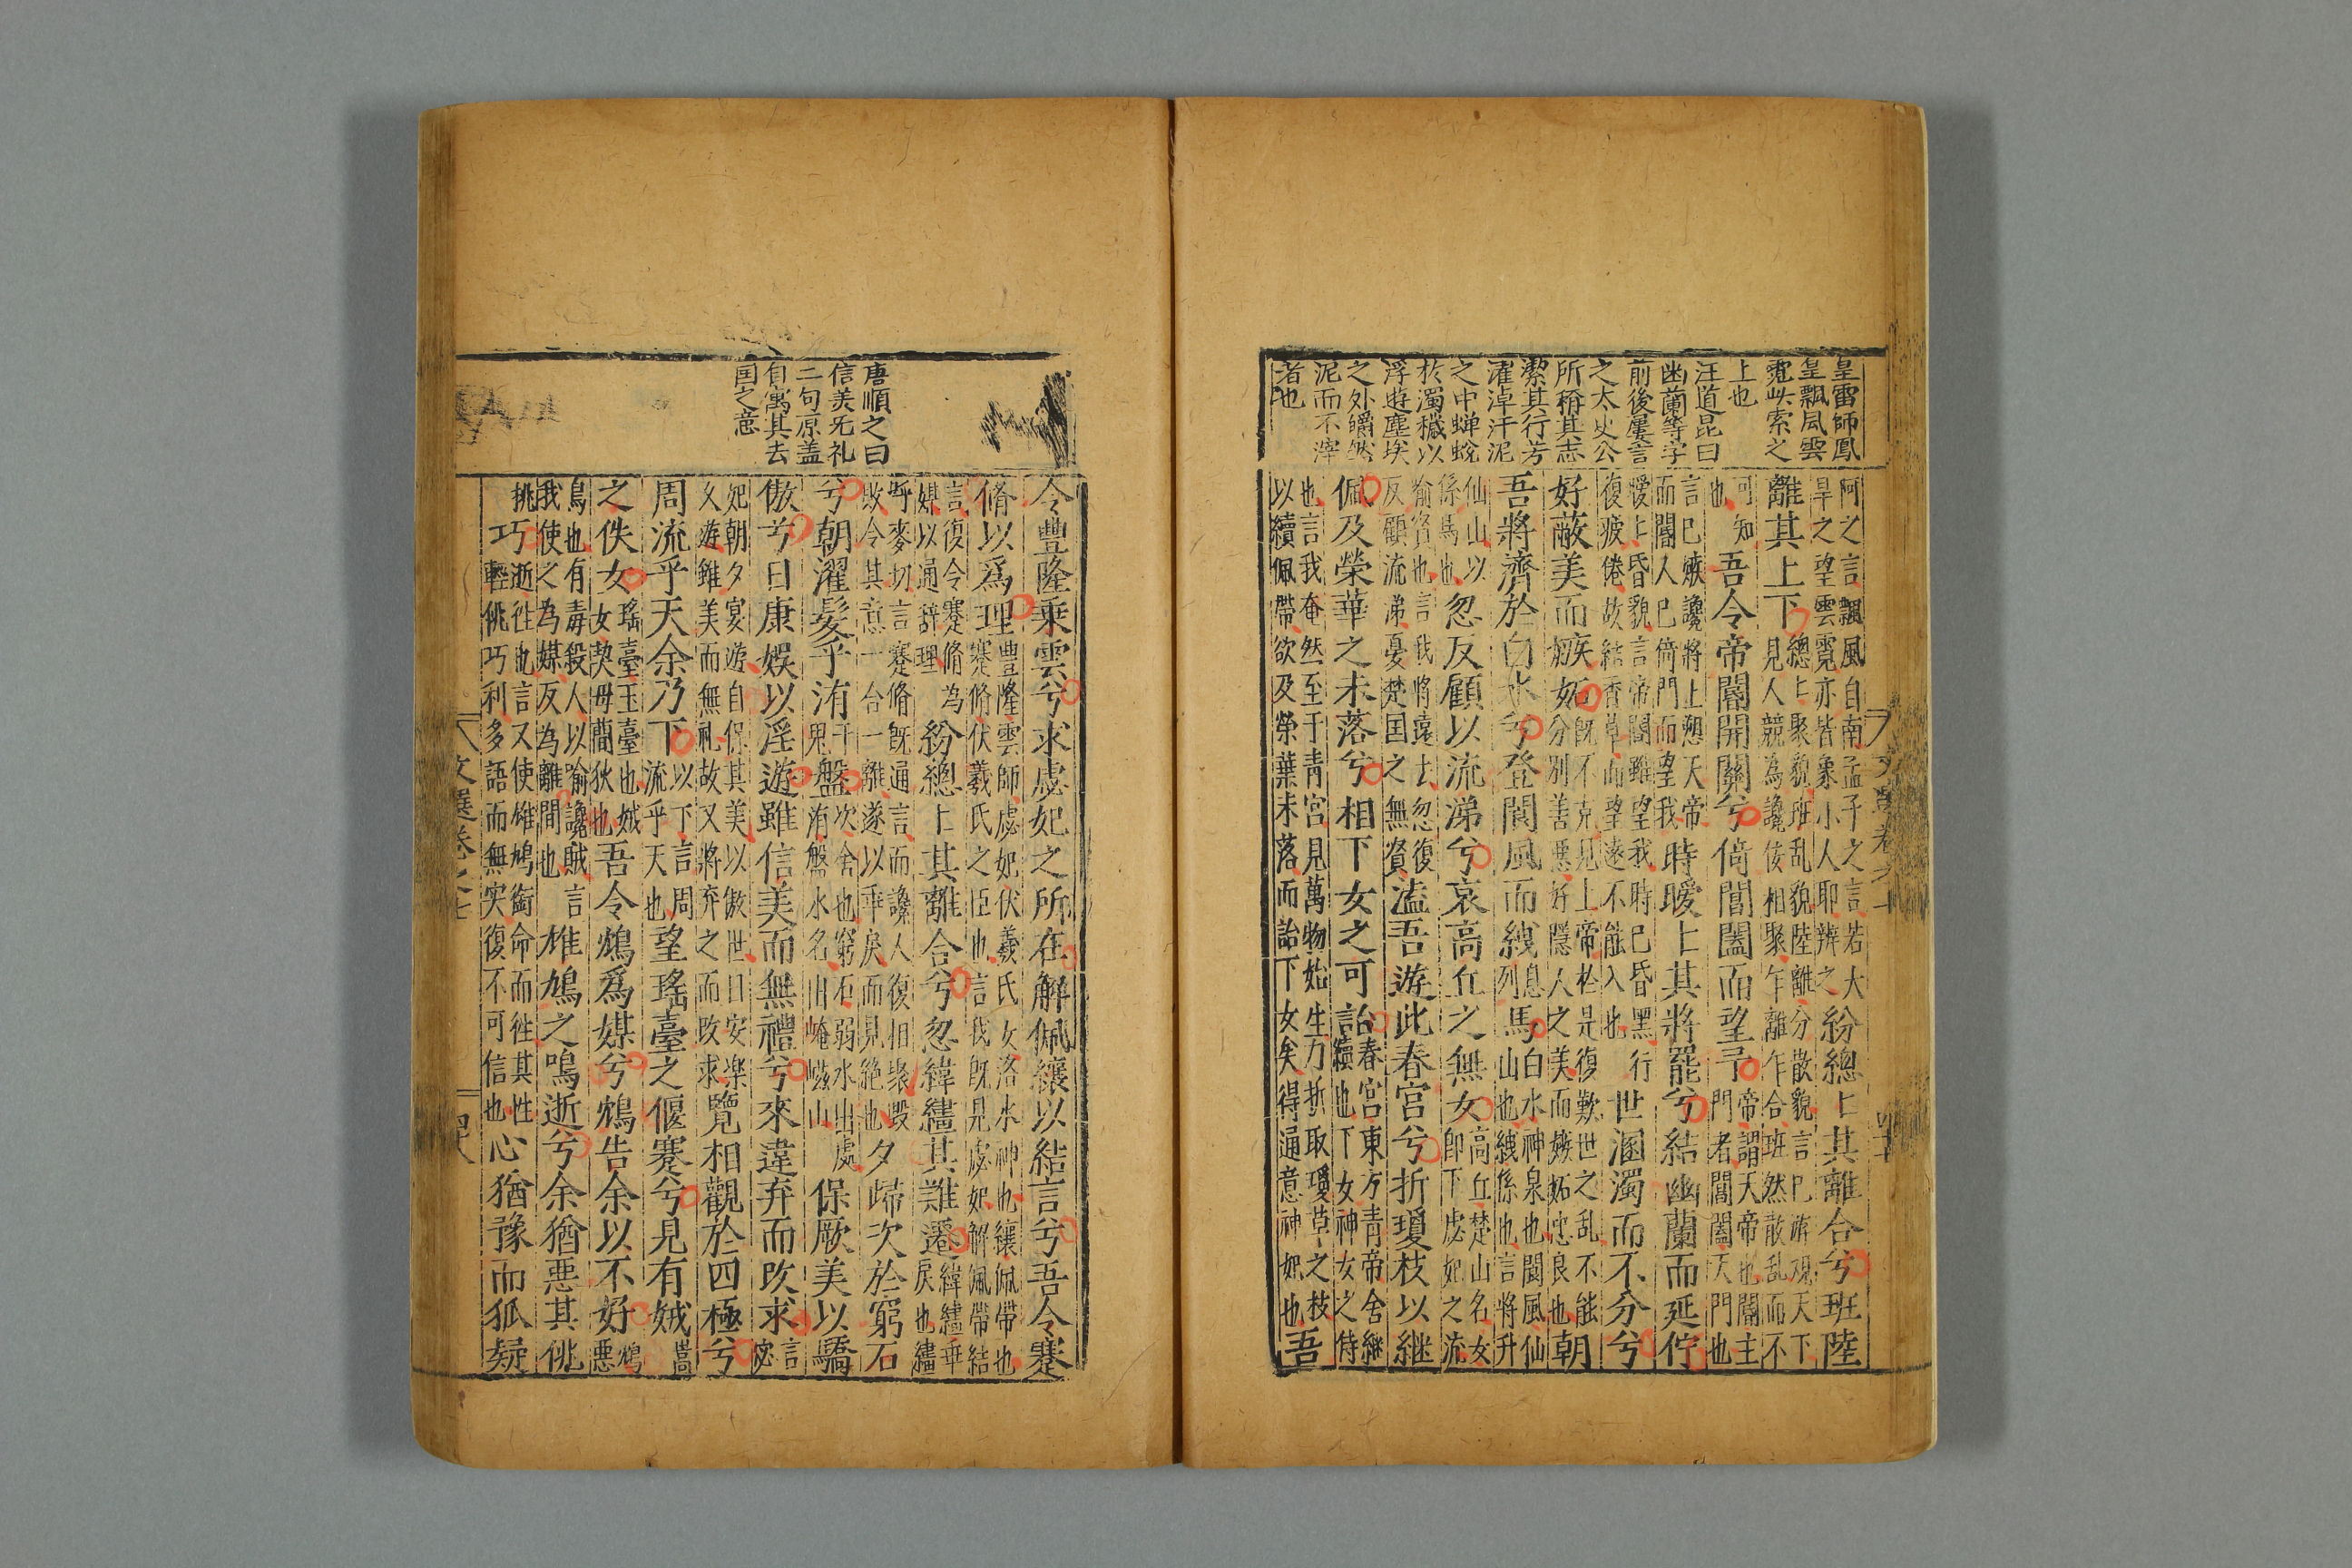 皇雷師鳳
皇飄風雲
霓此索之
上也
汪道昆曰
幽蘭等字
前後屢言
之太史公
所稱其志
潔其行芳
濯淖汙泥
之中蟬蛻
於濁穢以
浮遊塵埃
之外皭然
泥而不滓
者也
阿之言飄風自南孟子之言若大
旱之望雲霓亦皆象小人耶辨之
紛總上其離合兮班陸
離其上下
總上聚貌班乱貌陸離分散貌言巳遊观天下
見人競為讒佞相聚乍離乍合班然散乱而不
可知
也
吾令帝閽開關兮倚閶闔而望予
帝謂天帝也閽主
門者閶闔天門也
言巳嫉讒將上愬天帝
而閽人巳倚門而望我
時曖上其將罷兮結幽蘭而延佇
曖上昏貌言帝閽雖望我時巳昏黑行
復疲倦故結香草而望遠不能入也
世溷濁而不分兮
好蔽美而嫉妬
既不克見上帝於是復歎世之乱不能
分別善惡好隱人之美而嫉妬忠良也
朝
吾將濟於白水兮登閬風而緤馬
白水神泉也閬風仙
山也緤係也言將升
仙山以
係馬也
忽反顧以流涕兮哀高丘之無女
高丘楚山名女
即下虙妃之流
喻賢也言我將遠去忽復
反顧流涕憂楚国之無賢
溘吾遊此春宮兮折瓊枝以継
佩及榮華之未落兮相下女之可詒
春宮東方青帝舍継
續也下女神女之侍
也言我奄然至于青宮見萬物始生乃折取瓊草之枝
以續佩帶欲及榮葉未落而詒下女矣得通意神妃也
吾
令豊隆乗雲兮求虙妃之所在解佩纕以結言兮吾令蹇
脩以爲理
豊隆雲師虙妃伏羲氏女洛水神也纕佩帶也
蹇脩伏羲氏之臣也言我既見虙妃解佩帶結
言復令蹇脩為
媒以通辞理
紛總上其離合兮忽緯繣其難遷
緯繣乖
戾也繣
呼麥切言蹇脩既通言而讒人復相聚毀
敗令其意一合一離遂以乖戾而見絶也
夕歸次於窮石
兮朝濯髮乎洧盤
次舍也窮石弱水出處
洧盤水名出崦嵫山
保厥美以驕
傲兮日康娛以淫遊雖信美而無禮兮來違弃而改求
言
宓
妃朝夕宴遊自保其美以傲世日安楽
又遊雖美而無礼故又將弃之而改求
覽相觀於四極兮
周流乎天余乃下
以下言周
流乎天也
望瑤臺之偃蹇兮見有娀
之佚女
瑤臺玉臺也娀
女契母蕳狄也
吾令鴆爲媒兮鴆告余以不好
鴆
惡
鳥也有毒殺人以喻讒賊言
我使之為媒反為離間也
雄鳩之鳴逝兮余猶悪其佻
巧
逝徃也言又使雄鳩銜命而徃其性
輕佻巧利多語而無实復不可信也
心猶豫而狐疑
唐順之曰
信美无礼
二句原盖
自寓其去
国之意
文選卷之七